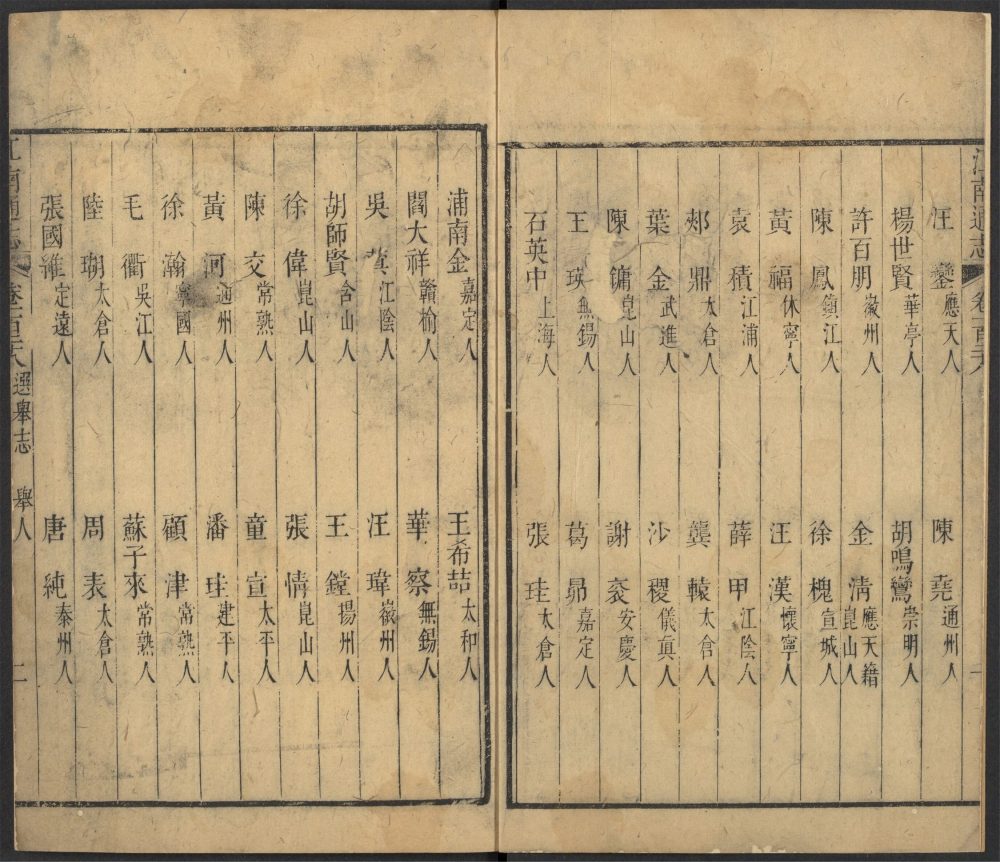 江南通志 卷一百二六 一
汪鑾應天人 陳堯通州人
楊世賢華亭人 胡鳴鸞崇明人
許百朋徽州人 金清應天籍崑山人
陳鳳鎮江人 徐槐宣城人
黃福休寧人 汪漢懷寧人
袁積江浦人 薛甲江陰人
郟鼎太倉人 龔轅太倉人
葉金武進人 沙稷儀眞人
陳鏞崑山人 謝兖安慶人
王瑛無錫人 葛昴嘉定人
石英中上海人 張珪太倉人
浦南金嘉定人 王希喆太和人
閻大祥贛榆人 華察無錫人
吳蓂江陰人 汪瑋徽州人
胡師賢含山人 王鏜揚州人
徐偉崑山人 張情崑山人
陳交常熟人 童宣太平人
黃河通州人 潘珪建平人
徐瀚寧國人 顧津常熟人
毛衢吳江人 蘇子來常熟人
陸瑚太倉人 周表太倉人
張國維定遠人 唐純泰州人
江南通志 選舉志 舉人 二